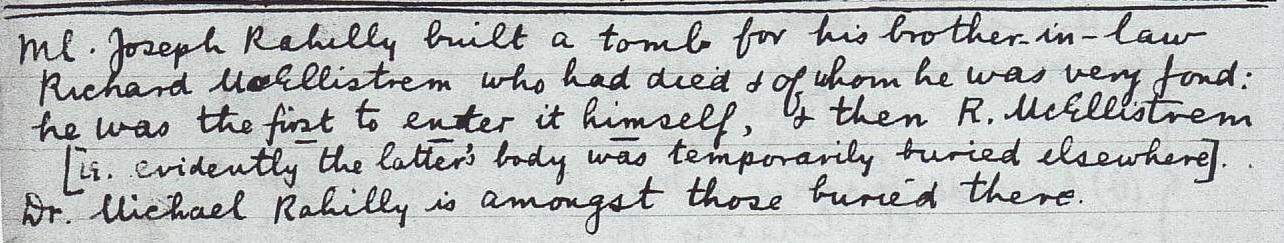 Ml. Joseph Rahilly built a tomb for his brother-in-law
Richard McEllistrem who had died & of whom he was very fond:
he was the first to enter it himself, & then R. McEllistrem
[i.e. evidently the latter's body was temporarily buried elsewhere].
Dr. Michael Rahilly is amongst those buried there.